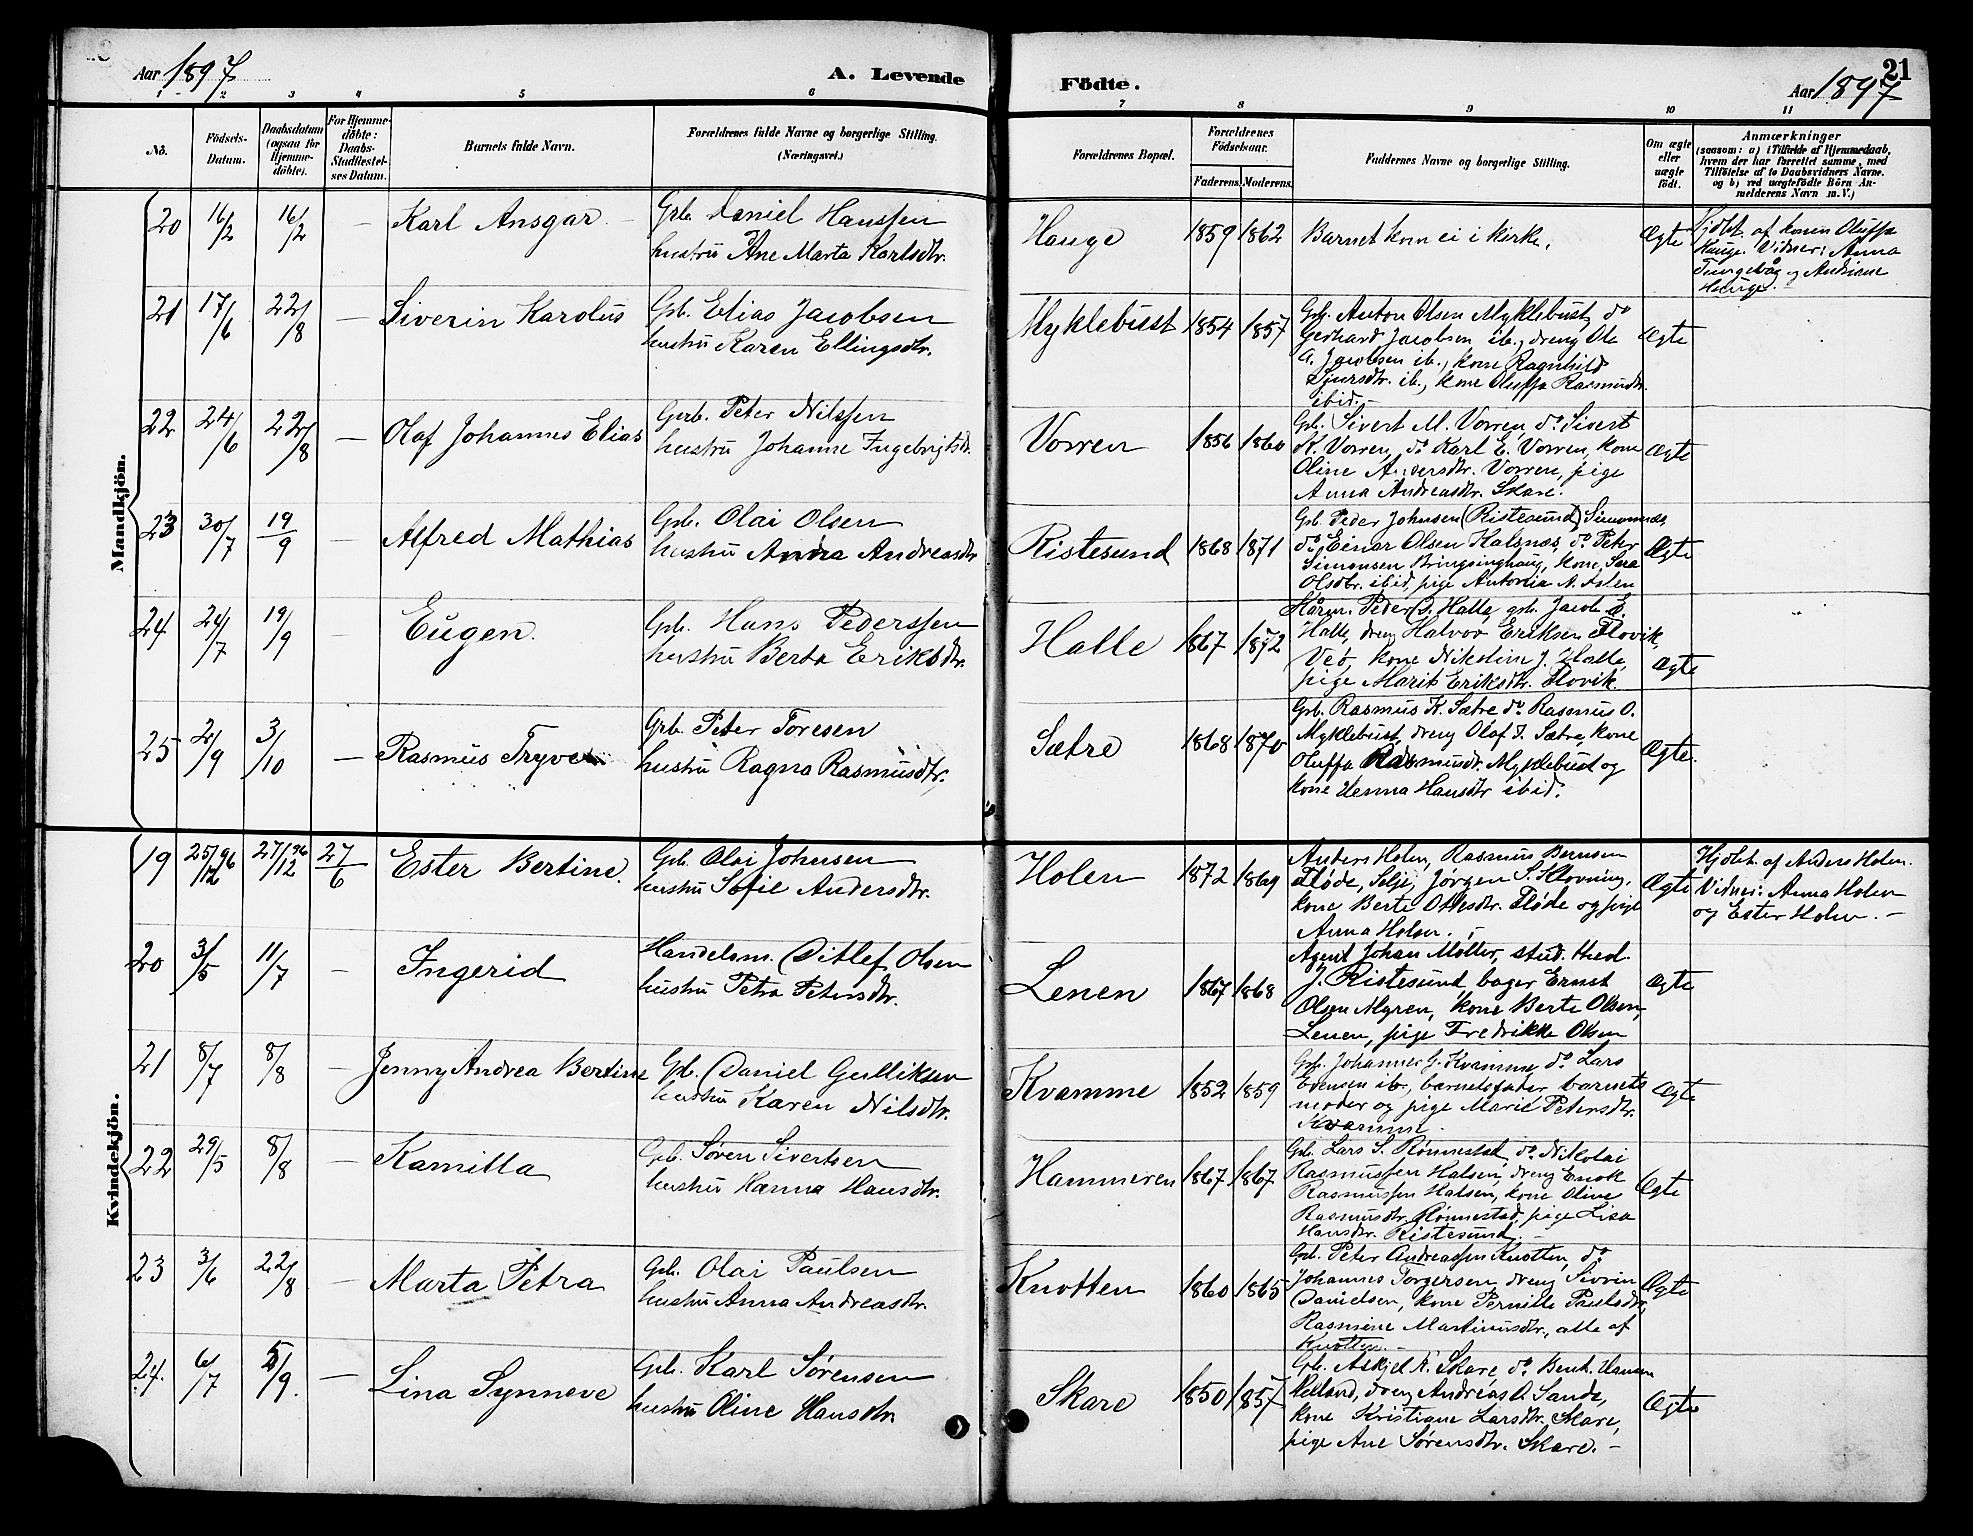 Aar 1897
A. Levende
Födte.
Aar 1897
21
1 2 3 4 5 6 7 8 9 10 11
No.
Födsels-
Datum.
Daabsdatum
(ogsaa for
Hjemme-
döbte).
For Hjemme-
döbte:
Daabs-
Stadfæstel-
ses Datum.
Barnets fulde Navn.
Forældrenes fulde Navne og borgerlige Stilling.
(Næringsvei.)
Forældrenes Bopæl.
Forældrenes
Födselsaar.
Faderens. Moderens.
Faddernes Navne og borgerlige Stilling.
Om ægte
eller
uægte
födt.
Anmærkninger
(saasom: a) i Tilfælde af Hjemmedaab,
hvem der har forrettet samme, med
Tilföielse af to Daabsvidners Navne.
og b) ved uægtefödte Börn An-
melderens Navn m. V.)
Mandkjön.
20 16/2 16/2 — Karl Ansgar
Grb. Daniel Hanssen
hustru Ane Marta Karlsdtr.
Hauge 1859 1862
Barnet kom ei i kirke.
Ægte
Hjdbt. af konen Oluffa
Hauge. Vidner: Anna
Tungevåg og Andriane
Hauge.
21 17/6 22/8 — Siverin Karolus
Grb. Elias Jacobsen
hustru Karen Ellingsdtr.
Myklebust 1854 1857
Grb. Anton Olsen Myklebust, do
Gerhard Jacobsen ib., dreng Ole
A. Jacobsen ib., kone Ragnhild
Sjursdtr. ib., kone Oluffa Rasmusdtr.
ibid. —
Ægte
22 24/6 22/8 — Olaf Johannes Elias
Grb. Peter Nilssen
hustru Johanne Ingebrigtsdr.
Vorren 1856 1860
Grb. Sivert M. Vorren, do Sivert
K. Vorren, do Karl E. Vorren, kone
Oline Andersdtr. Vorren, pige
Anna Andreasdtr. Skare.
Ægte
23 30/7 19/9 — Alfred Mathias
Grb. Olai Olsen
hustru Andrea Andreasdtr
Ristesund 1868 1871
Grb. Peder Johnsen (Ristesund) Simonnæs,
do Einar Olsen Halsnæs, do Peter
Simonsen Bringsinghaug, kone Sara
Olsdtr. ibid, pige Antonia A. Aslen
Ægte
24 24/7 19/9 — Eugen.
Grb. Hans Pederssen
hustru Berta Eriksdtr.
Halle 1867 1872
Kårm. Peder J. Halle, grb. Jacob E.
Halle, dreng Halvor Eriksen Flovik,
Veø, kone Nikoline J. Halle,
pige Marit Eriksdtr. Flovik.
Ægte
25 2/9 3/10 — Rasmus Tryve
Grb. Peter Toresen
hustru Ragna Rasmusdtr.
Sætre 1868 1870
Grb. Rasmus K. Sætre do Rasmus O.
Myklebust, dreng Olaf T. Sætre, kone
Oluffa Rasmusdr. Myklebust og
kone Henna Hansdtr ibid.
Ægte.
Kvindekjön.
19 25/12 96 27/12 96 27/6 Ester Bertine.
Grb. Olai Johnsen
hustru Sofie Andersdtr.
Holen 1872 1869
Anders Holen, Rasmus Bernsen
Fløde, Selje, Jørgen S. Klovning,
kone Berte Olsdtr. Fløde og pige
Anna Holen. —
Ægte
Hjdbt. af Anders Holen.
Vidner: Anna Holen
og Ester Holen. —
20 3/5 11/7 — Ingerid
Handelsm. Ditlef Olsen
hustru Petra Petersdtr.
Lenen 1867 1868
Agent Johan Møller, stud. theol.
J. Ristesund, bager Ernst
Olsen Myren, kone Berte Olsen,
Lenen, pige Fredrikke Olsen
Ægte
21 8/7 8/8 — Jenny Andrea Bertine
Grb. Daniel Gulliksen
hustru Karen Nilsdtr.
Kvamme 1852 1859
Grb. Johannes J. Kvamme, do Lars
Evensen ib., barnets fader, barnets
moder og pige Marie Petersdtr.
Kvamme.
Ægte
22 29/5 8/8 — Kamilla
Grb. Søren Sivertsen
hustru Hanna Hansdtr.
Hammeren 1867 1867
Grb. Lars S. Rønnestad, do Nikolai
Rasmussen Halsen, dreng Enok
Rasmussen Halsen, kone Oline
Rasmusdtr. Rønnestad, pige Lisa
Hansdtr. Ristesund. —
Ægte
23 3/6 22/8 — Marta Petra
Grb. Olai Paulsen
hustru Anna Andreasdtr.
Knotten 1860 1865
Grb. Peter Andreassen Knotten, do
Johannes Torgersen, dreng Sivrin
Danielsen, kone Pernille Paulsdtr,
Rasmine Martinusdtr., alle af
Knotten. —
Ægte
24. 6/7 5/9. — Lina Synneve
Grb. Karl Sørensen
hustru Oline Hansdtr
Skare 1850 1857
Grb. Askjel K. Skare, do Bent. Hansen
Helland, dreng Andreas A. Sande,
kone Kristiane Larsdtr. Skare,
pige Ane Sørensdtr. Skare. —
Ægte